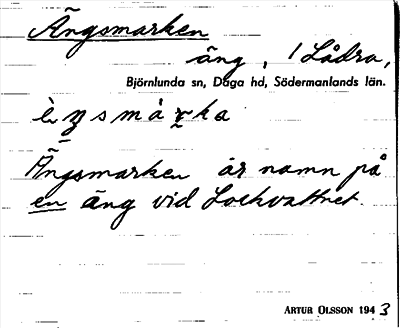 Ängsmarken
äng, 1 Lådra,
Björnlunda sn, Daga hd, Södermanlands län.
Ängsmarken är namn på
en äng vid Lockvattnet.
ARTUR OLSSON 1943